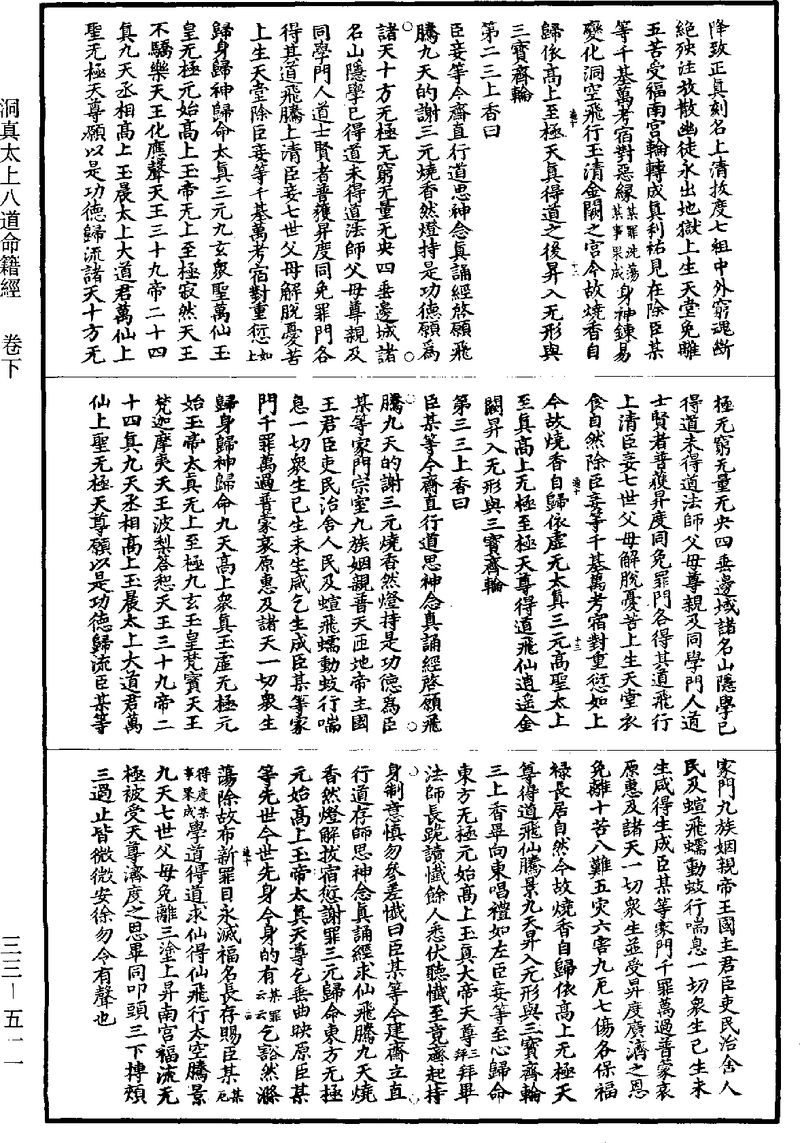 降致正真刻名上清拔度七祖中外窮魂斷
絶殃注放散幽徒永出地獄上生天堂免離
五苦受福南宮輪轉成真利祐見在除臣某
等千基萬考宿對惡緣某罪洗蕩某事果成身神鍊易
變化洞空飛行玉清金闕之宮今故燒香自
歸依高上至極天真得道之後昇入无形與
三寶齊輪
第二三上香曰
臣妾等今齋直行道思神念真誦經啓願飛
騰九天的謝三元燒香然燈持是功德願爲
諸天十方无極无窮无量无央四垂邊域諸
名山隱學已得道未得道法師父母尊親及
同學門人道士賢者普獲昇度同免罪門各
得其道飛騰上清臣妾七世父母解脫憂苦
上生天堂除臣妾等千基萬考宿對重愆如上
歸身歸神歸命太真三元九玄衆聖萬仙玉
皇无極元始高上玉帝无上至極寂然天王
不驕樂天王化應聲天王三十九帝二十四
真九天丞相高上玉晨太上大道君萬仙上
聖无極天尊願以是功德歸流諸天十方无
極无窮无量无央四垂邊域諸名山隱學已
得道未得道法師父母尊親及同學門人道
士賢者普獲昇度同免罪門各得其道飛行
上清臣妾七世父母解脫憂苦上生天堂衣
食自然除臣妾等千基萬考宿對重愆如上
今故燒香自歸依虛无太真三元高聖太上
至真高上无極至極天尊得道飛仙逍遥金
闕昇入无形與三寶齊輪
第三三上香曰
臣某等今齋直行道思神念真誦經啓願飛
騰九天的謝三元燒香然燈持是功德爲臣
某等家門宗室九族姻親普天匝地帝主國
王君臣吏民治舍人民及蝖飛蠕動蚑行喘
息一切衆生已生未生咸乞生成臣某等家
門千罪萬過普蒙哀原惠及諸天一切衆生
歸身歸神歸命九天高上衆真王虛无極元
始玉帝太真无上至極九玄玉皇梵寶天王
梵迦摩夷天王波梨荅惒天王三十九帝二
十四真九天丞相高上玉晨太上大道君萬
仙上聖无極天尊願以是功德歸流臣某等
家門九族姻親帝王國主君臣吏民治舍人
民及蝖飛蠕動蚑行喘息一切衆生已生未
生咸得生成臣某等家門千罪萬過普蒙哀
原惠及諸天一切衆生並受昇度廣濟之恩
免離十苦八難五灾六害九厄七傷各保福
禄長居自然今故燒香自歸依高上无極天
尊得道飛仙騰景九天昇入无形與三寶齊輪
三上香畢向東唱禮如左臣妾等至心歸命
東方无極元始高上玉真大帝天尊三拜拜畢
法師長跪讀懺餘人悉伏聽懺至竟齋起持
身制意慎勿參差懺曰臣某等今建齋立直
行道存師思神念真誦經求仙飛騰九天燒
香然燈解拔宿愆謝罪三元歸命東方无極
元始高上玉帝太真天尊乞垂曲映原臣某
等先世今世先身今身的有某罪云云乞豁然滌
蕩除故布新罪目永滅福名長存賜臣某某厄
得度某事果成學道得道求仙得仙飛行太空騰景
九天七世父母免離三塗上昇南宮福流无
極被受天尊濟度之恩畢同叩頭三下摶頰
三過止皆微微安徐勿令有聲也
洞真太上八道命籍經　卷下
三三－五一一